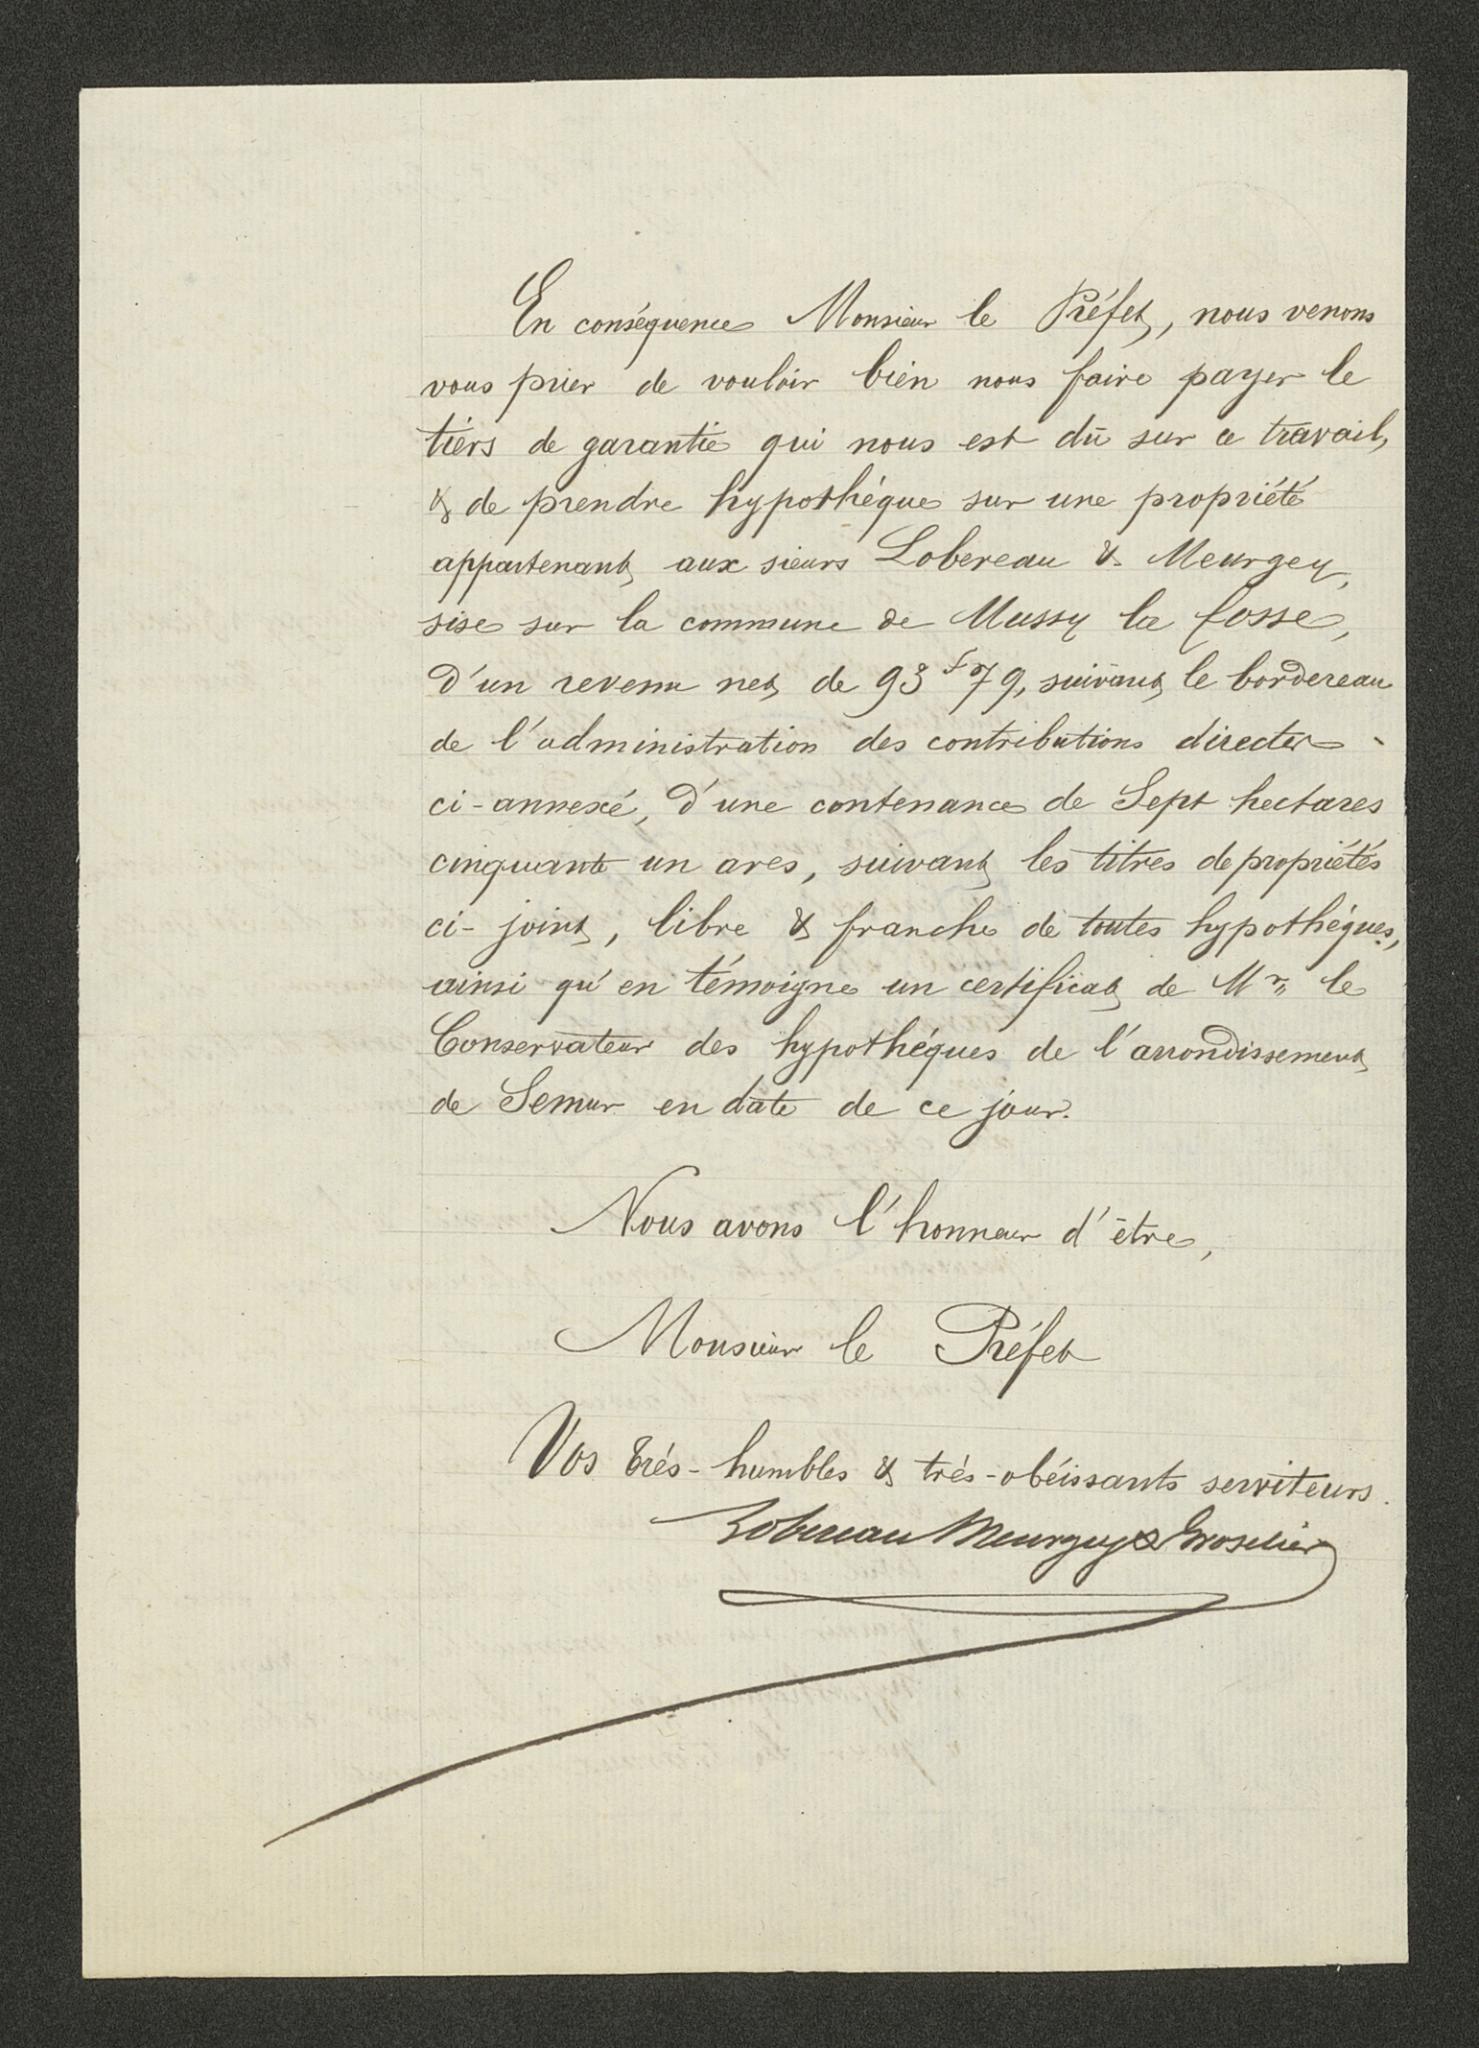 En conséquence Monsieur le Préfet, nous venons
vous prier de vouloir bien nous faire payer le
tiers de garantie qui nous est dû sur ce travail,
& de prendre hypothéque sur une propriété
appartenant aux sieurs Lobereau & Meurgey,
sise sur la commune de Mussy la fosse,
d'un revenu net de 93f79, suivant le bordereau
de l'administration des contributions directes
ci-annexé, d'une contenance de Sept hectares
cinquante un ares, suivant les titres de propriétés
ci-joint, libre & franche de toutes hypothéques,
ainsi qu'en témoigne un certificat de Mr le
Conservateur des hypothéques de l'arrondissement
de Semur en date de ce jour.
Nous avons l'honneur d'être,
Monsieur le Préfet
Vos trés-humbles & trés-obéissants serviteurs.
Lobereau Meurgey & Groselier